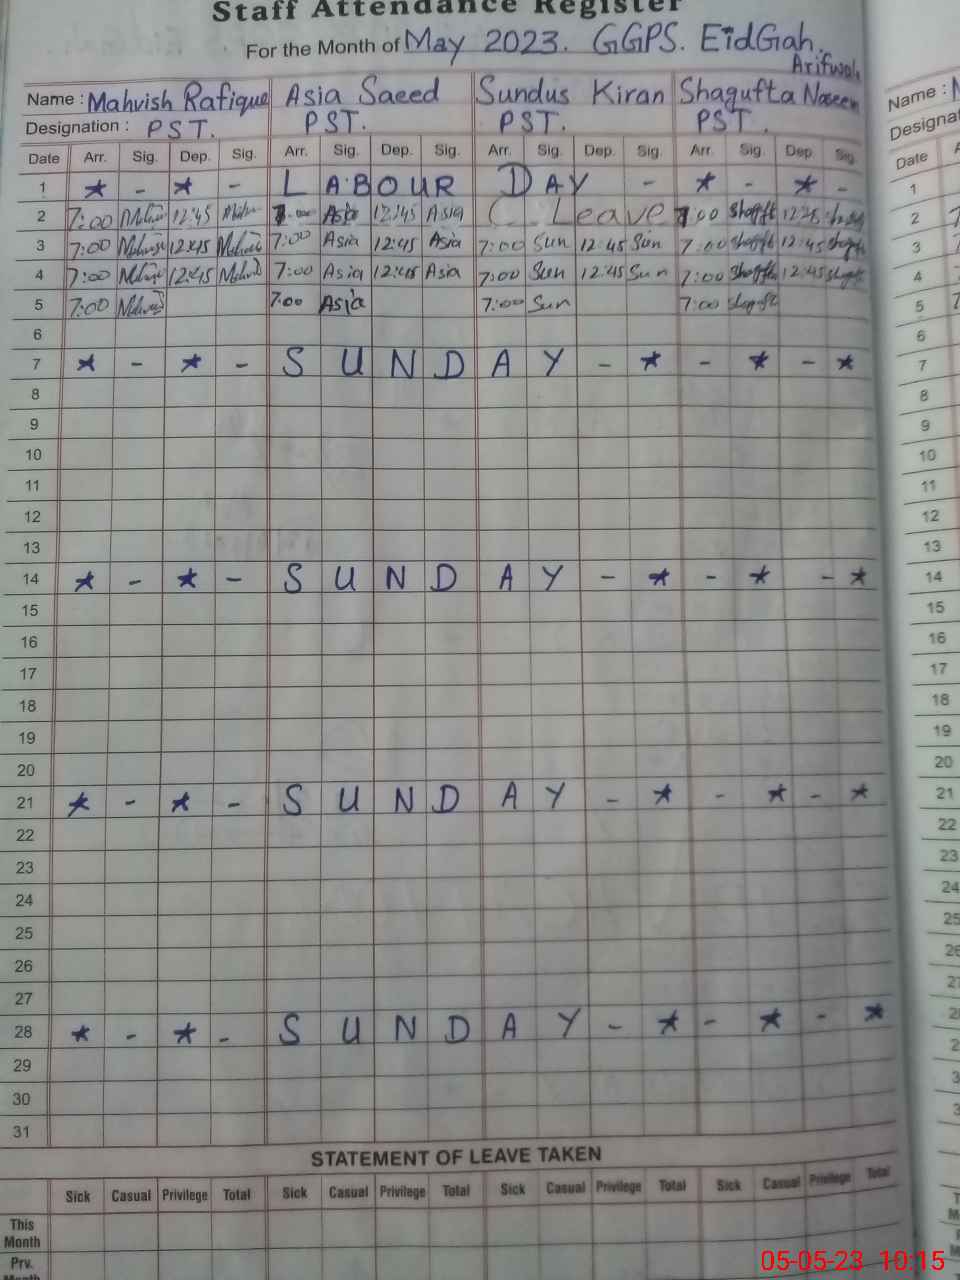 Staff Attendance Register
For the Month of May 2023. GGPS. EidGah.
Arifwala
Name : Mahvish Rafique Asia Saeed Sundus Kiran Shagufta Naseem
Designation : PST. PST. PST. PST.
Date Arr. Sig. Dep. Sig. Arr. Sig. Dep. Sig. Arr. Sig. Dep. Sig. Arr. Sig. Dep Sig
1 * - * - L A B O U R D A Y - * - * -
2 7:00 12:45 7:00 Asia 12:45 Asia C. Leave 7:00 Shagft
3 7:00 12:45 7:00 Asia 12:45 Asia 7:00 Sun 12:45 Sun 7:00 12:45
4 7:00 12:45 7:00 Asia 12:45 Asia 7:00 Sun 12:45 Sun 7:00 12:45
5 7:00 7:00 Asia 7:00 Sun 7:00 Shagft
6
7 * - * - S U N D A Y - * - * - *
8
9
10
11
12
13
14 * - * - S U N D A Y - * - * - *
15
16
17
18
19
20
21 * - * - S U N D A Y - * - * - *
22
23
24
25
26
27
28 * - * - S U N D A Y - * - * - *
29
30
31
STATEMENT OF LEAVE TAKEN
Sick Casual Privilege Total Sick Casual Privilege Total Sick Casual Privilege Total Sick Casual Privilege Total
This
Month
Prv.
Month
Name :
Date
1
2
3
4
5
6
7
8
9
10
11
12
13
14
15
16
17
18
19
20
21
22
23
24
25
26
05-05-23 10:15